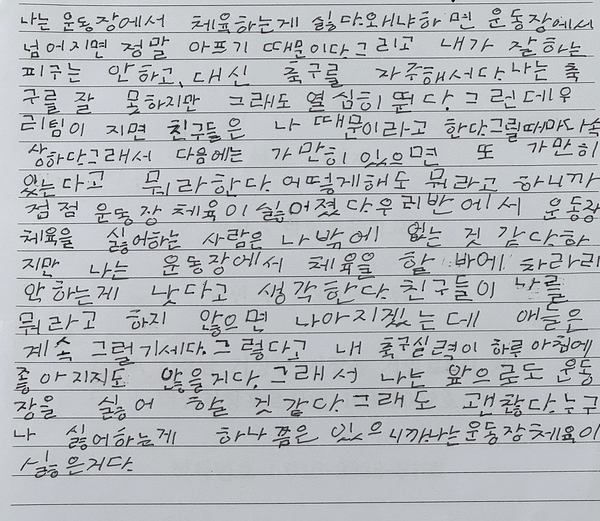 나는 운동장에서 체육하는게 싫다.왜냐하면 운동장에서
넘어지면 정말 아프기 때문이다.그리고 내가 잘하는
피구는 안하고, 대신 축구를 자주해서다.나는 축
구를 잘 못하지만 그래도 열심히 뛴다.그런데우
리팀이 지면 친구들은 나 때문이라고 한다.그럴때마다속
상하다.그래서 다음에는 가만히 있으면 또 가만히
있는다고 뭐라한다.어떻게해도 뭐라고 하니까
점점 운동장 체육이 싫어졌다.우리반에서 운동장
체육을 싫어하는 사람은 나밖에 없는 것 같다.하
지만 나는 운동장에서 체육을 할 바에 차라리
안하는게 낫다고 생각한다.친구들이 나를
뭐라고 하지 않으면 나아지겠는데 애들은
계속 그럴기세다.그렇다고 내 축구실력이 하루아침에
좋아지지도 않을거다.그래서 나는 앞으로도 운동
장을 싫어 할 것 같다.그래도 괜찮다.누구
나 싫어하는게 하나쯤은 있으니까나는운동장체육이
싫은거다.